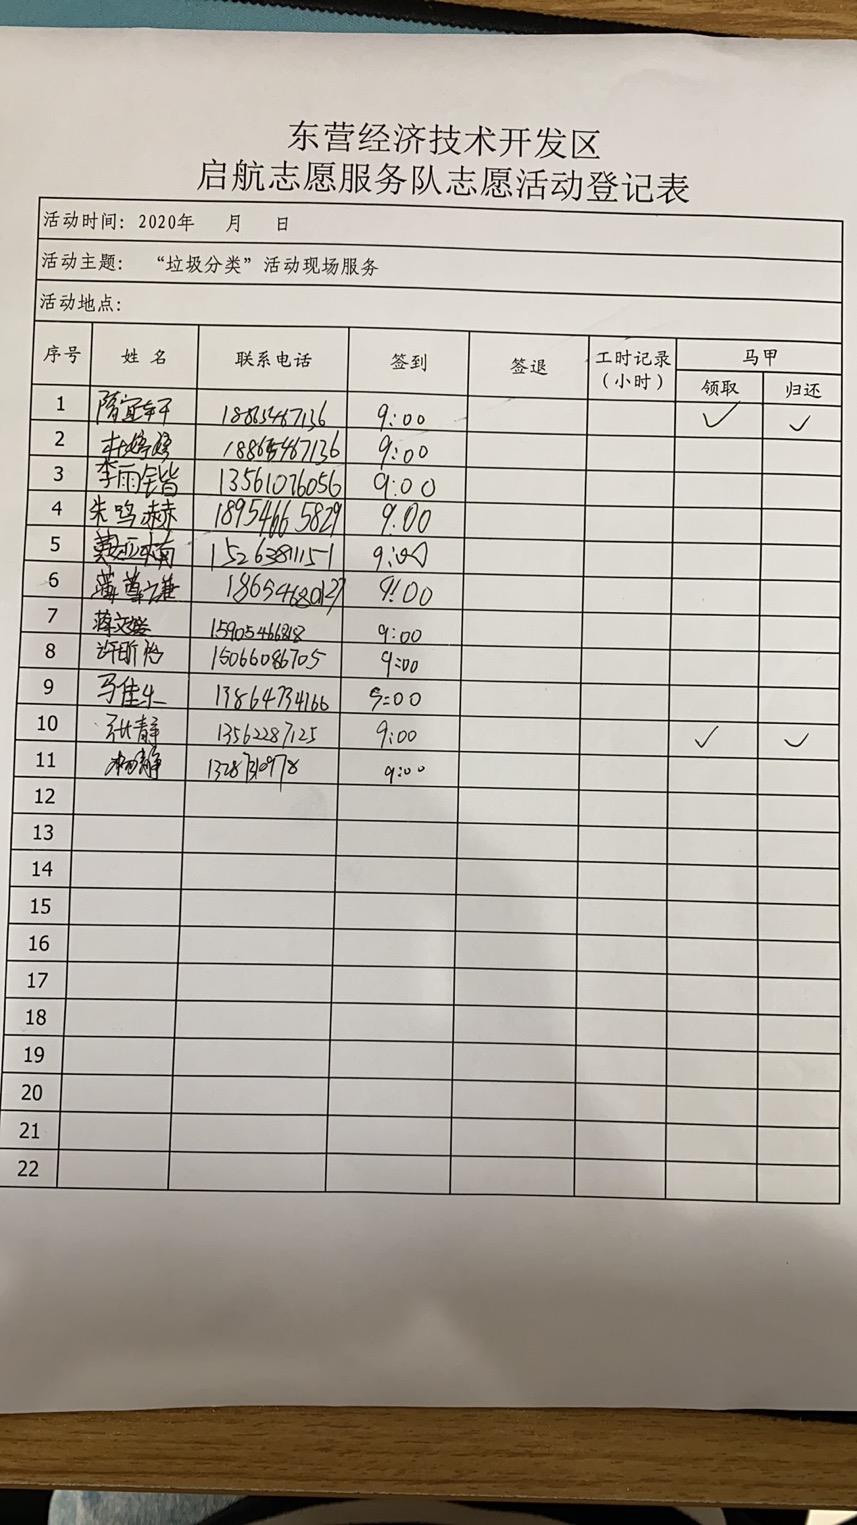 东营经济技术开发区
启航志愿服务队志愿活动登记表
活动时间: 2020年 月 日
活动主题: “垃圾分类”活动现场服务
活动地点:
序号 姓名 联系电话 签到 签退 工时记录(小时) 马甲
领取 归还
1 隋宜轩 18865467136 9:00 ✓ ✓
2 18865467136 9:00
3 李雨锴 13561076056 9:00
4 朱鸣赫 18954665829 9:00
5 15263811151 9:00
6 18654680127 9:00
7 蒋文 15905466818 9:00
8 许昕怡 15066086705 9:00
9 马佳乐 13864734166 9:00
10 张静 13562287125 9:00 ✓ ✓
11 杨静 9:00
12
13
14
15
16
17
18
19
20
21
22